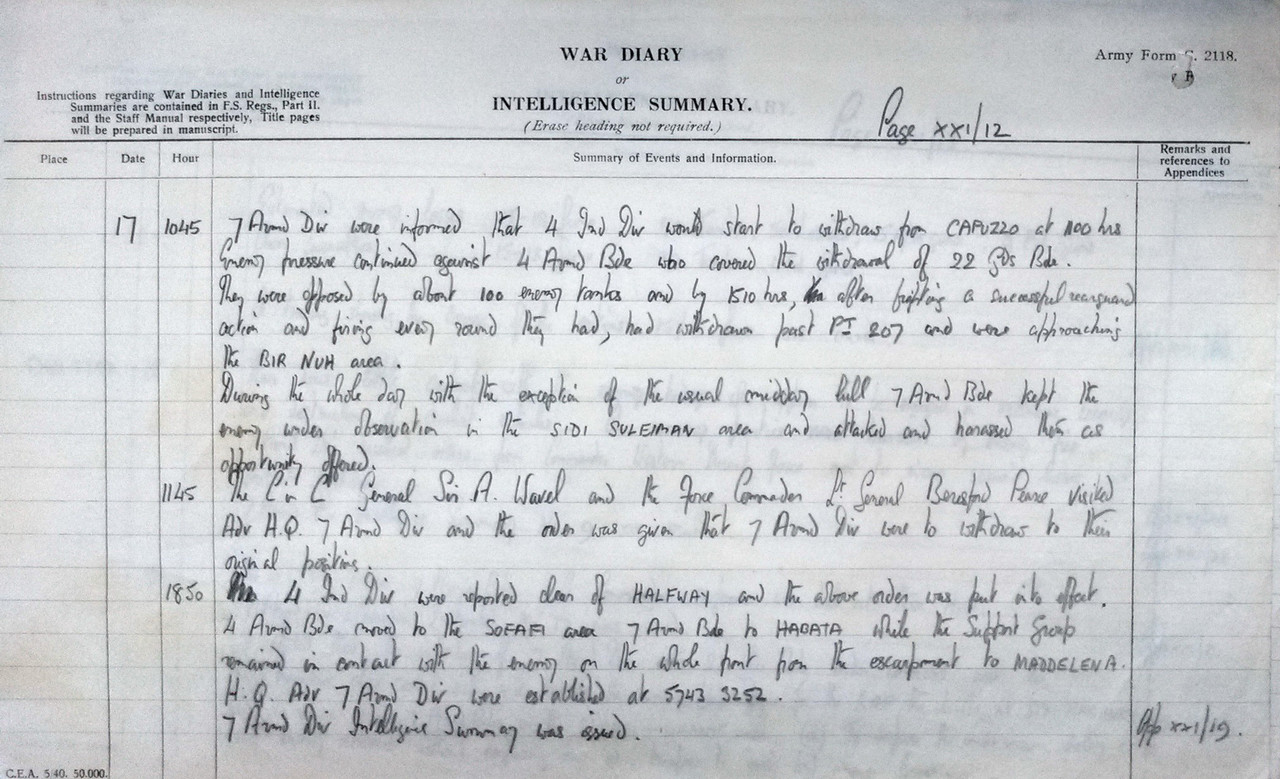 WAR DIARY
or
INTELLIGENCE SUMMARY.
(Erase heading not required.)
Army Form C. 2118.
Instructions regarding War Diaries and Intelligence
Summaries are contained in F.S. Regs., Part II.
and the Staff Manual respectively, Title pages
will be prepared in manuscript.
Page XXI/12
Place Date Hour Summary of Events and Information. Remarks and references to Appendices
17 1045 7 Armd Div were informed that 4 Ind Div would start to withdraw from CAPUZZO at 1100 hrs
Enemy pressure continued against 4 Armd Bde who covered the withdrawal of 22 Gds Bde.
They were opposed by about 100 enemy tanks and by 1510 hrs, after fighting a successful rearguard
action and firing every round they had, had withdrawn past PT 207 and were approaching
the BIR NUH area.
During the whole day with the exception of the usual midday lull 7 Armd Bde kept the
enemy under observation in the SIDI SULEIMAN area and attacked and harassed them as
opportunity offered.
1145 The C in C General Sir A. Wavel and the Force Commander Lt General Beresford Pearse visited
Adv H.Q. 7 Armd Div and the order was given that 7 Armd Div were to withdraw to their
original positions.
1850 4 Ind Div were reported clear of HALFWAY and the above order was put into effect.
4 Armd Bde moved to the SOFAFI area 7 Armd Bde to HABATA while the Support Group
remained in contact with the enemy on the whole front from the escarpment to MADDELENA.
H.Q. Adv 7 Armd Div were established at 5743 3252.
7 Armd Div Intelligence Summary was issued. App XXI/19.
C.E.A. 5/40. 50.000.